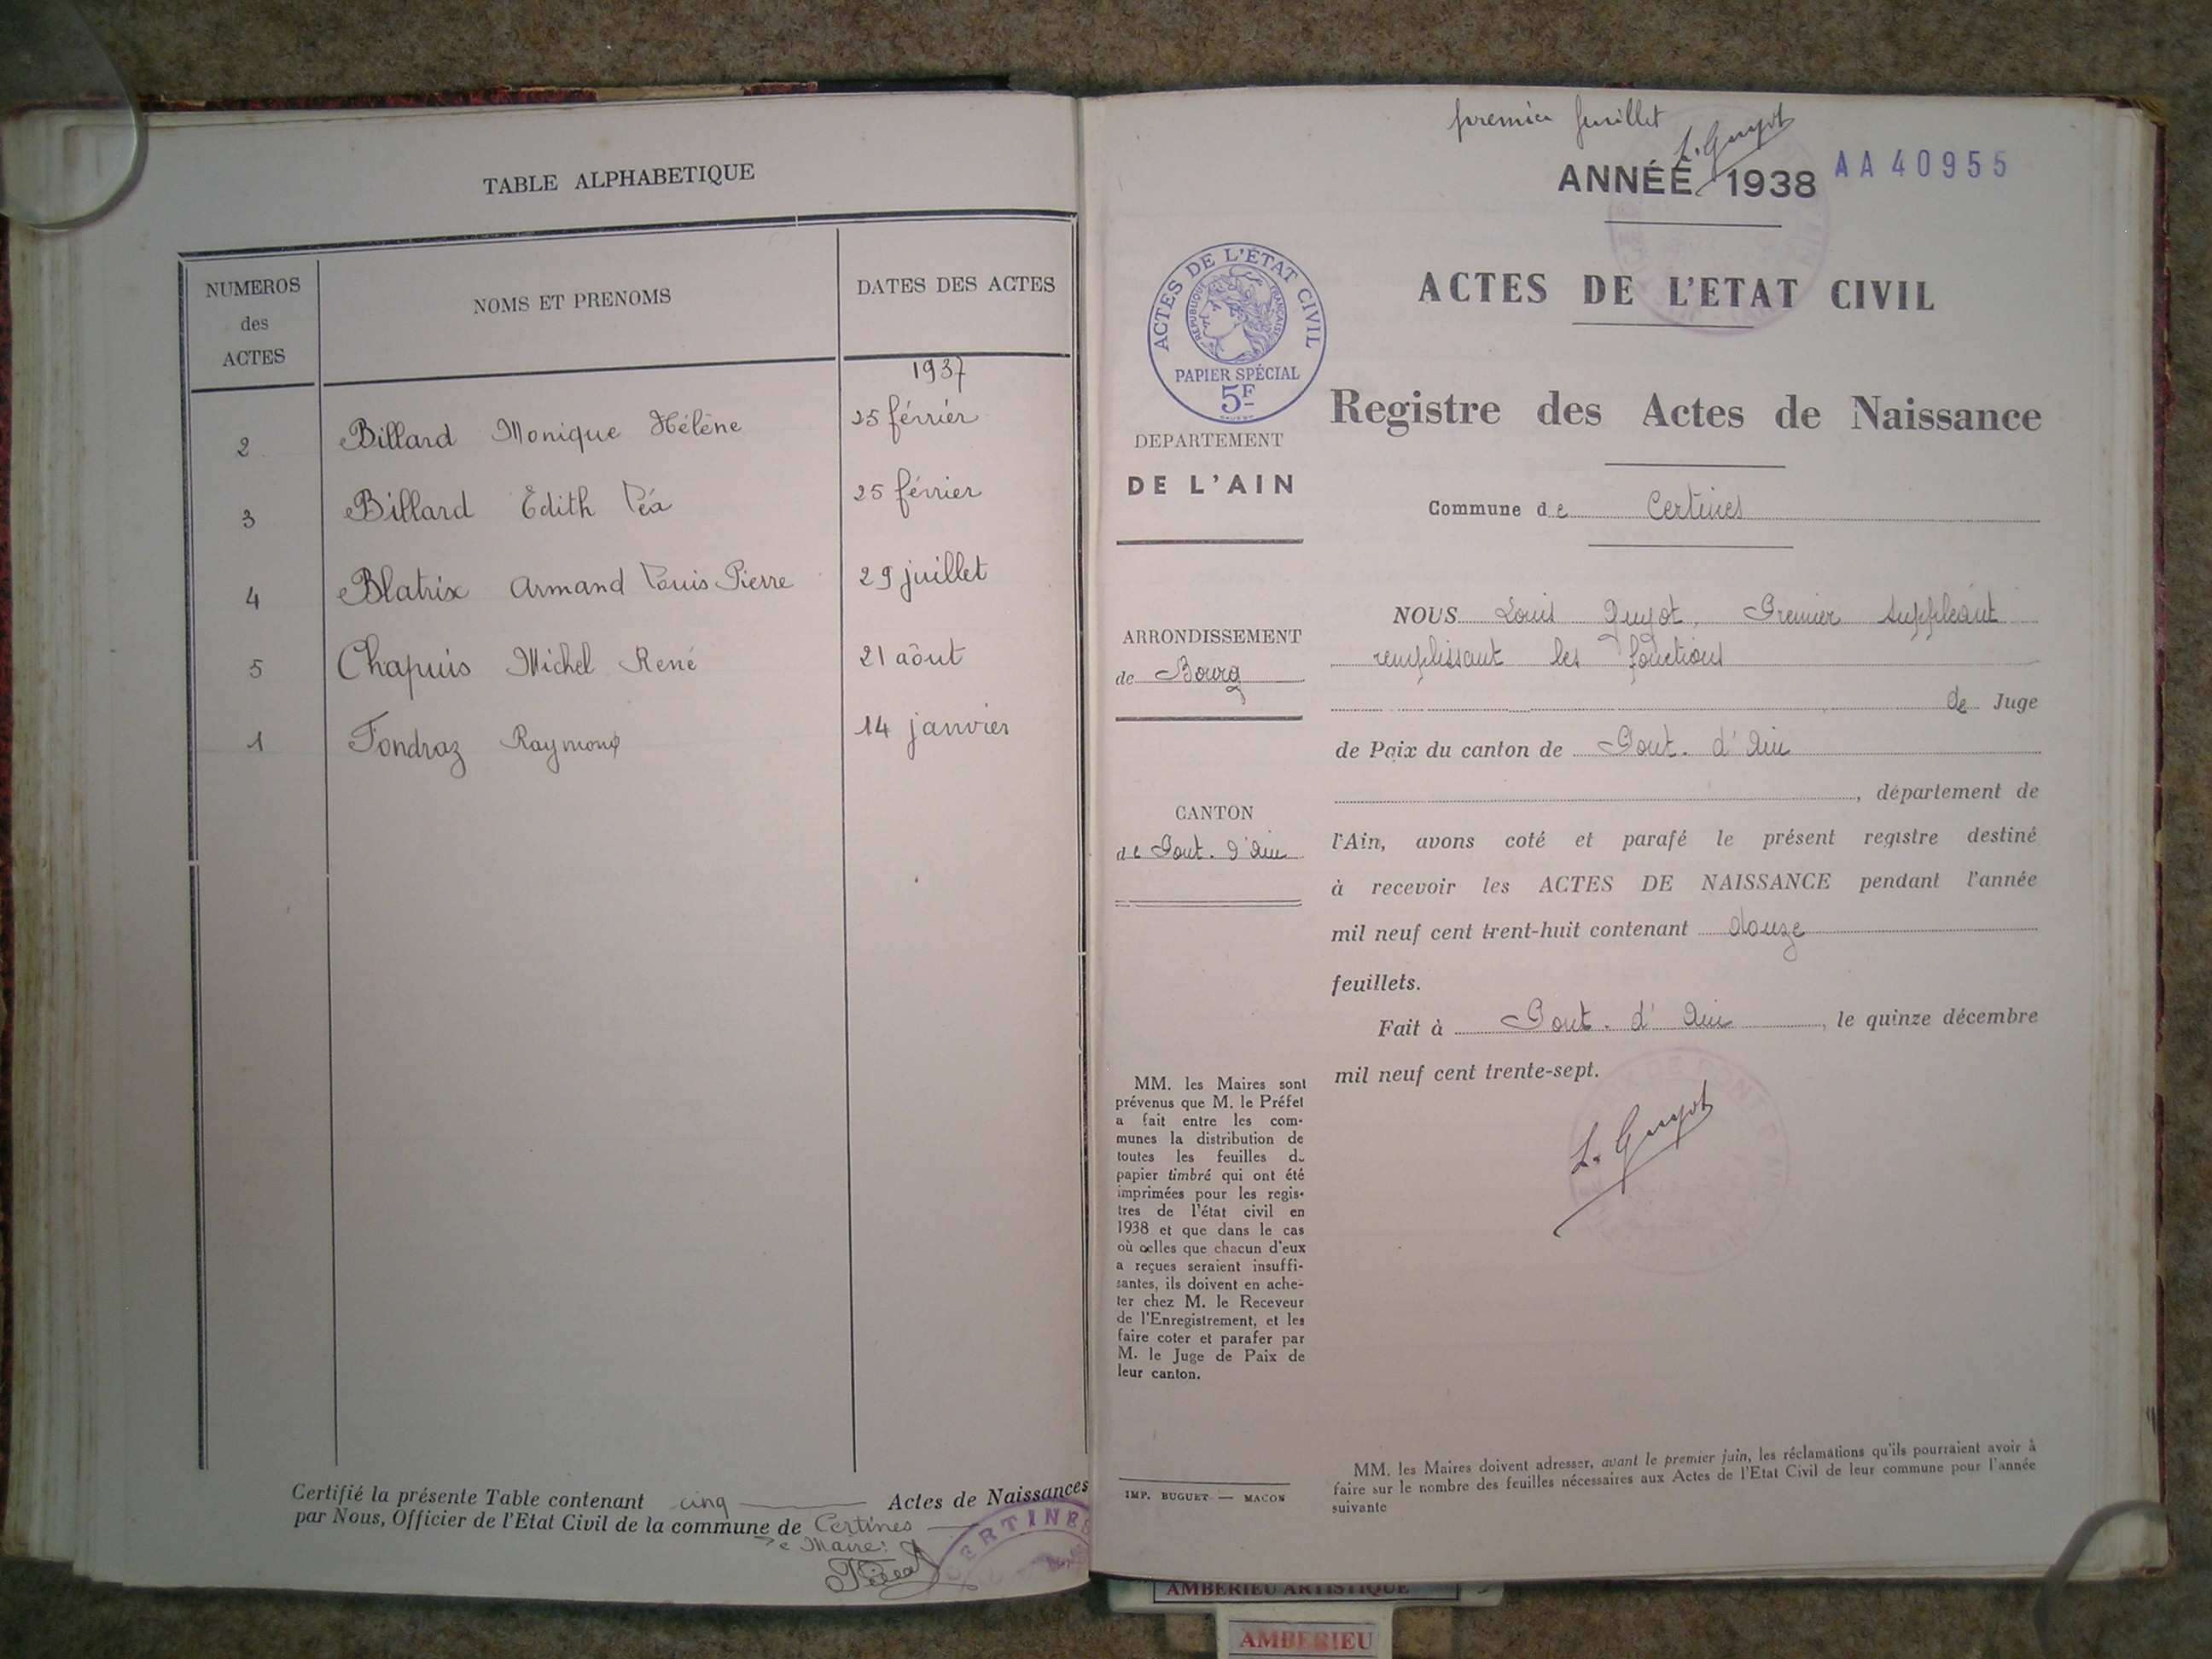 TABLE ALPHABETIQUE
NUMEROS
des
ACTES
NOMS ET PRENOMS
DATES DES ACTES
1937
2 Billard Monique Hélène 25 février
3 Billard Edith Léa 25 février
4 Blatrix Armand Louis Pierre 29 juillet
5 Chapuis Michel René 21 aôut
1 Fondraz Raymond 14 janvier
Certifié la présente Table contenant cinq Actes de Naissances
par Nous, Officier de l'Etat Civil de la commune de Certines
Le Maire:
CERTINES
premier feuillet
L. Guyot
ANNÉE 1938 AA 40955
ACTES DE L'ÉTAT CIVIL
RÉPUBLIQUE FRANÇAISE
PAPIER SPÉCIAL
5F
DEPARTEMENT
DE L'AIN
ARRONDISSEMENT
de Bourg
CANTON
de Pont. d'Ain
MM. les Maires sont
prévenus que M. le Préfet
a fait entre les com-
munes la distribution de
toutes les feuilles de
papier timbré qui ont été
imprimées pour les regis-
tres de l'état civil en
1938 et que dans le cas
où celles que chacun d'eux
a reçues seraient insuffi-
santes, ils doivent en ache-
ter chez M. le Receveur
de l'Enregistrement, et les
faire coter et parafer par
M. le Juge de Paix de
leur canton.
IMP. BUGUET — MACON
ACTES DE L'ETAT CIVIL
Registre des Actes de Naissance
Commune de Certines
NOUS Louis Guyot, Premier Suppléant
remplissant les fonctions
de Juge
de Paix du canton de Pont. d'Ain
, département de
l'Ain, avons coté et parafé le présent registre destiné
à recevoir les ACTES DE NAISSANCE pendant l'année
mil neuf cent trent-huit contenant douze
feuillets.
Fait à Pont. d'Ain, le quinze décembre
mil neuf cent trente-sept.
L. Guyot
MM. les Maires doivent adresser, avant le premier juin, les réclamations qu'ils pourraient avoir à
faire sur le nombre des feuilles nécessaires aux Actes de l'Etat Civil de leur commune pour l'année
suivante
AMBERIEU ARTISTIQUE
AMBERIEU